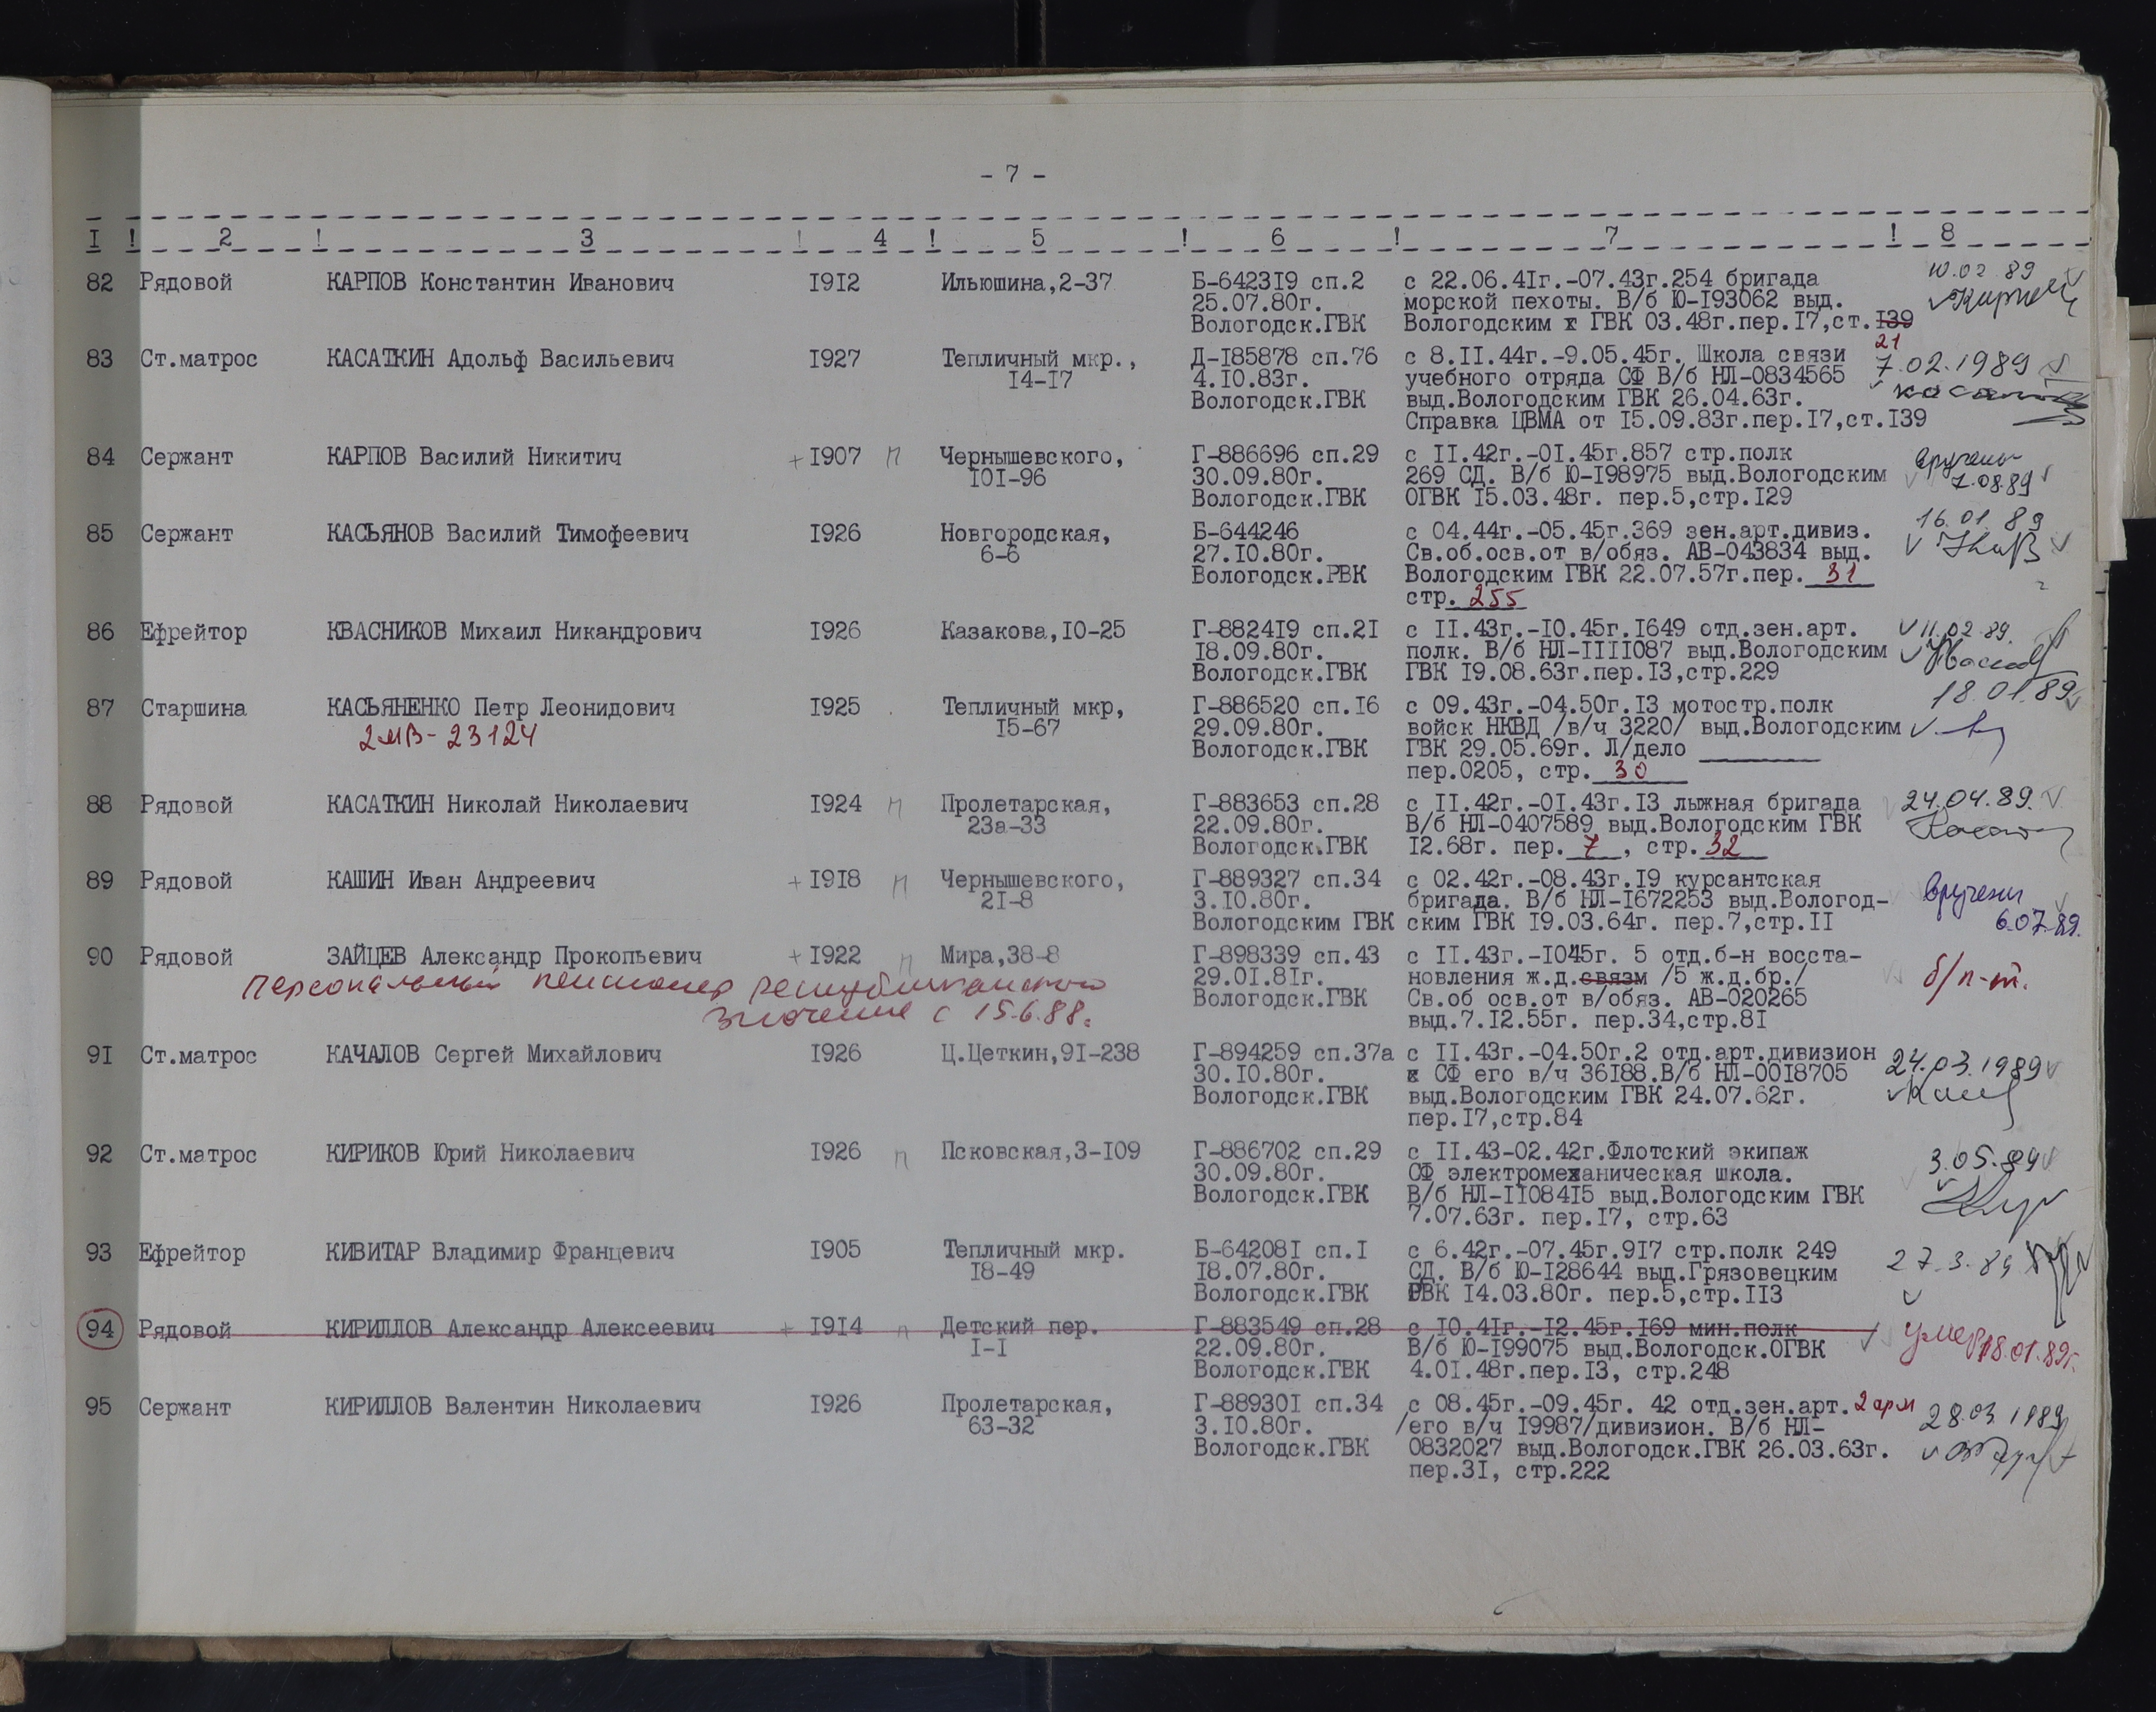 - 7 -
I ! 2 ! 3 ! 4 ! 5 ! 6 ! 7 ! 8
82 Рядовой КАРПОВ Константин Иванович I9I2 Ильюшина,2-37 Б-6423I9 сп.2 с 22.06.4Iг.-07.43г.254 бригада 10.02 89
25.07.80г. морской пехоты. В/б Ю-I93062 выд.
Вологодск.ГВК Вологодским х ГВК 03.48г.пер.I7,ст.I39
21
83 Ст.матрос КАСАТКИН Адольф Васильевич I927 Тепличный мкр., Д-I85878 сп.76 с 8.II.44г.-9.05.45г. Школа связи 7.02.1989
I4-I7 4.I0.83г. учебного отряда СФ В/б НЛ-0834565
Вологодск.ГВК выд.Вологодским ГВК 26.04.63г.
Справка ЦВМА от I5.09.83г.пер.I7,ст.I39
84 Сержант КАРПОВ Василий Никитич + I907 п Чернышевского, Г-886696 сп.29 с II.42г.-0I.45г.857 стр.полк вручены
I0I-96 30.09.80г. 269 СД. В/б Ю-I98975 выд.Вологодским 7.08.89
Вологодск.ГВК ОГВК I5.03.48г. пер.5,стр.I29
85 Сержант КАСЬЯНОВ Василий Тимофеевич I926 Новгородская, Б-644246 с 04.44г.-05.45г.369 зен.арт.дивиз. 16.01 89
6-6 27.I0.80г. Св.об.осв.от в/обяз. АВ-043834 выд.
Вологодск.РВК Вологодским ГВК 22.07.57г.пер. 31
стр. 255
86 Ефрейтор КВАСНИКОВ Михаил Никандрович I926 Казакова,I0-25 Г-8824I9 сп.2I с II.43г.-I0.45г.I649 отд.зен.арт. 11.02.89.
I8.09.80г. полк. В/б НЛ-IIII087 выд.Вологодским
Вологодск.ГВК ГВК I9.08.63г.пер.I3,стр.229
87 Старшина КАСЬЯНЕНКО Петр Леонидович I925 Тепличный мкр, Г-886520 сп.I6 с 09.43г.-04.50г.I3 мотостр.полк 18.01.89
2МВ-23124 I5-67 29.09.80г. войск НКВД /в/ч 3220/ выд.Вологодским
Вологодск.ГВК ГВК 29.05.69г. Л/дело
пер.0205, стр. 30
88 Рядовой КАСАТКИН Николай Николаевич I924 п Пролетарская, Г-883653 сп.28 с II.42г.-0I.43г.I3 лыжная бригада 24.04.89.
23а-33 22.09.80г. В/б НЛ-0407589 выд.Вологодским ГВК
Вологодск.ГВК I2.68г. пер. 7, стр. 32
89 Рядовой КАШИН Иван Андреевич + I9I8 п Чернышевского, Г-889327 сп.34 с 02.42г.-08.43г.I9 курсантская вручены
2I-8 3.I0.80г. бригада. В/б НЛ-I672253 выд.Вологод- 6.07.89.
Вологодским ГВК ским ГВК I9.03.64г. пер.7,стр.II
90 Рядовой ЗАЙЦЕВ Александр Прокопьевич + I922 п Мира,38-8 Г-898339 сп.43 с II.43г.-I045г. 5 отд.б-н восста- б/п-т.
Персональный пенсионер республиканского 29.0I.8Iг. новления ж.д.связм /5 ж.д.бр./
значение с 15.6.88. Вологодск.ГВК Св.об осв.от в/обяз. АВ-020265
выд.7.I2.55г. пер.34,стр.8I
9I Ст.матрос КАЧАЛОВ Сергей Михайлович I926 Ц.Цеткин,9I-238 Г-894259 сп.37а с II.43г.-04.50г.2 отд.арт.дивизион 24.03.1989
30.I0.80г. х СФ его в/ч 36I88.В/б НЛ-00I8705
Вологодск.ГВК выд.Вологодским ГВК 24.07.62г.
пер.I7,стр.84
92 Ст.матрос КИРИКОВ Юрий Николаевич I926 п Псковская,3-I09 Г-886702 сп.29 с II.43-02.42г.Флотский экипаж 3.05.89
30.09.80г. СФ электромеханическая школа.
Вологодск.ГВК В/б НЛ-II084I5 выд.Вологодским ГВК
7.07.63г. пер.I7, стр.63
93 Ефрейтор КИВИТАР Владимир Францевич I905 Тепличный мкр. Б-64208I сп.I с 6.42г.-07.45г.9I7 стр.полк 249 27.3.89
I8-49 I8.07.80г. СД. В/б Ю-I28644 выд.Грязовецким
Вологодск.ГВК РВК I4.03.80г. пер.5,стр.II3
94 Рядовой КИРИЛЛОВ Александр Алексеевич + I9I4 п Детский пер. Г-883549 сп.28 с I0.4Iг.-I2.45г.I69 мин.полк умер 18.01.89г.
I-I 22.09.80г. В/б Ю-I99075 выд.Вологодск.ОГВК
Вологодск.ГВК 4.0I.48г.пер.I3, стр.248
95 Сержант КИРИЛЛОВ Валентин Николаевич I926 Пролетарская, Г-88930I сп.34 с 08.45г.-09.45г. 42 отд.зен.арт. 2 арм 28.03 1989
63-32 3.I0.80г. /его в/ч I9987/дивизион. В/б НЛ-
Вологодск.ГВК 0832027 выд.Вологодск.ГВК 26.03.63г.
пер.3I, стр.222